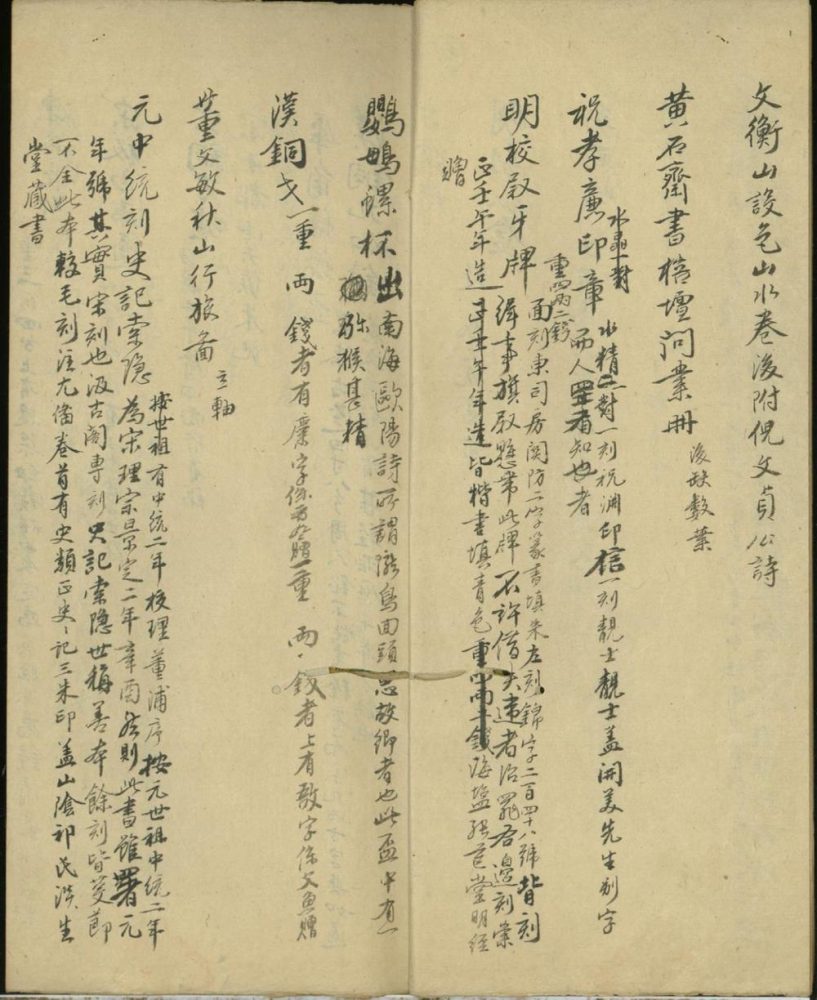 文衡山設色山水卷後附倪文貞公詩
黄石齋書榕壇問業冊 後缺數葉
祝孝廉印章 水晶一對
水精二對一刻祝淵印信一刻靚士靚士蓋開美先生别字
而人罕有知也者
明校尉牙牌 重四兩二錢
面刻東司房関防二字篆書填朱左刻錦字二百四十八號背刻
緝事旗尉懸帶此牌不許借失違者治罪右邊刻崇
正壬午年造皆楷書填青色重四兩二錢海塩張芑堂明經
贈
鸚鵡螺杯出南海歐陽詩所謂隴鳥回頭思故鄉者也此盃中有一
獼猴甚精
漢銅戈一重 兩 錢者有廉字係 贈一重 兩 錢者上有敦字係文魚贈
董文敏秋山行旅啚 立軸
元中統刻史記索隠 按世祖有中統二年校理董浦序按元世祖中統二年
為宋理宗景定二年辛酉然則此書雖署元
年號其實宋刻也汲古阁專刻史記索隠世稱善本餘刻皆芟節
不全此本較毛刻注尤備卷首有史類正史〻記三朱印盖山陰祁氏淡生
堂藏書